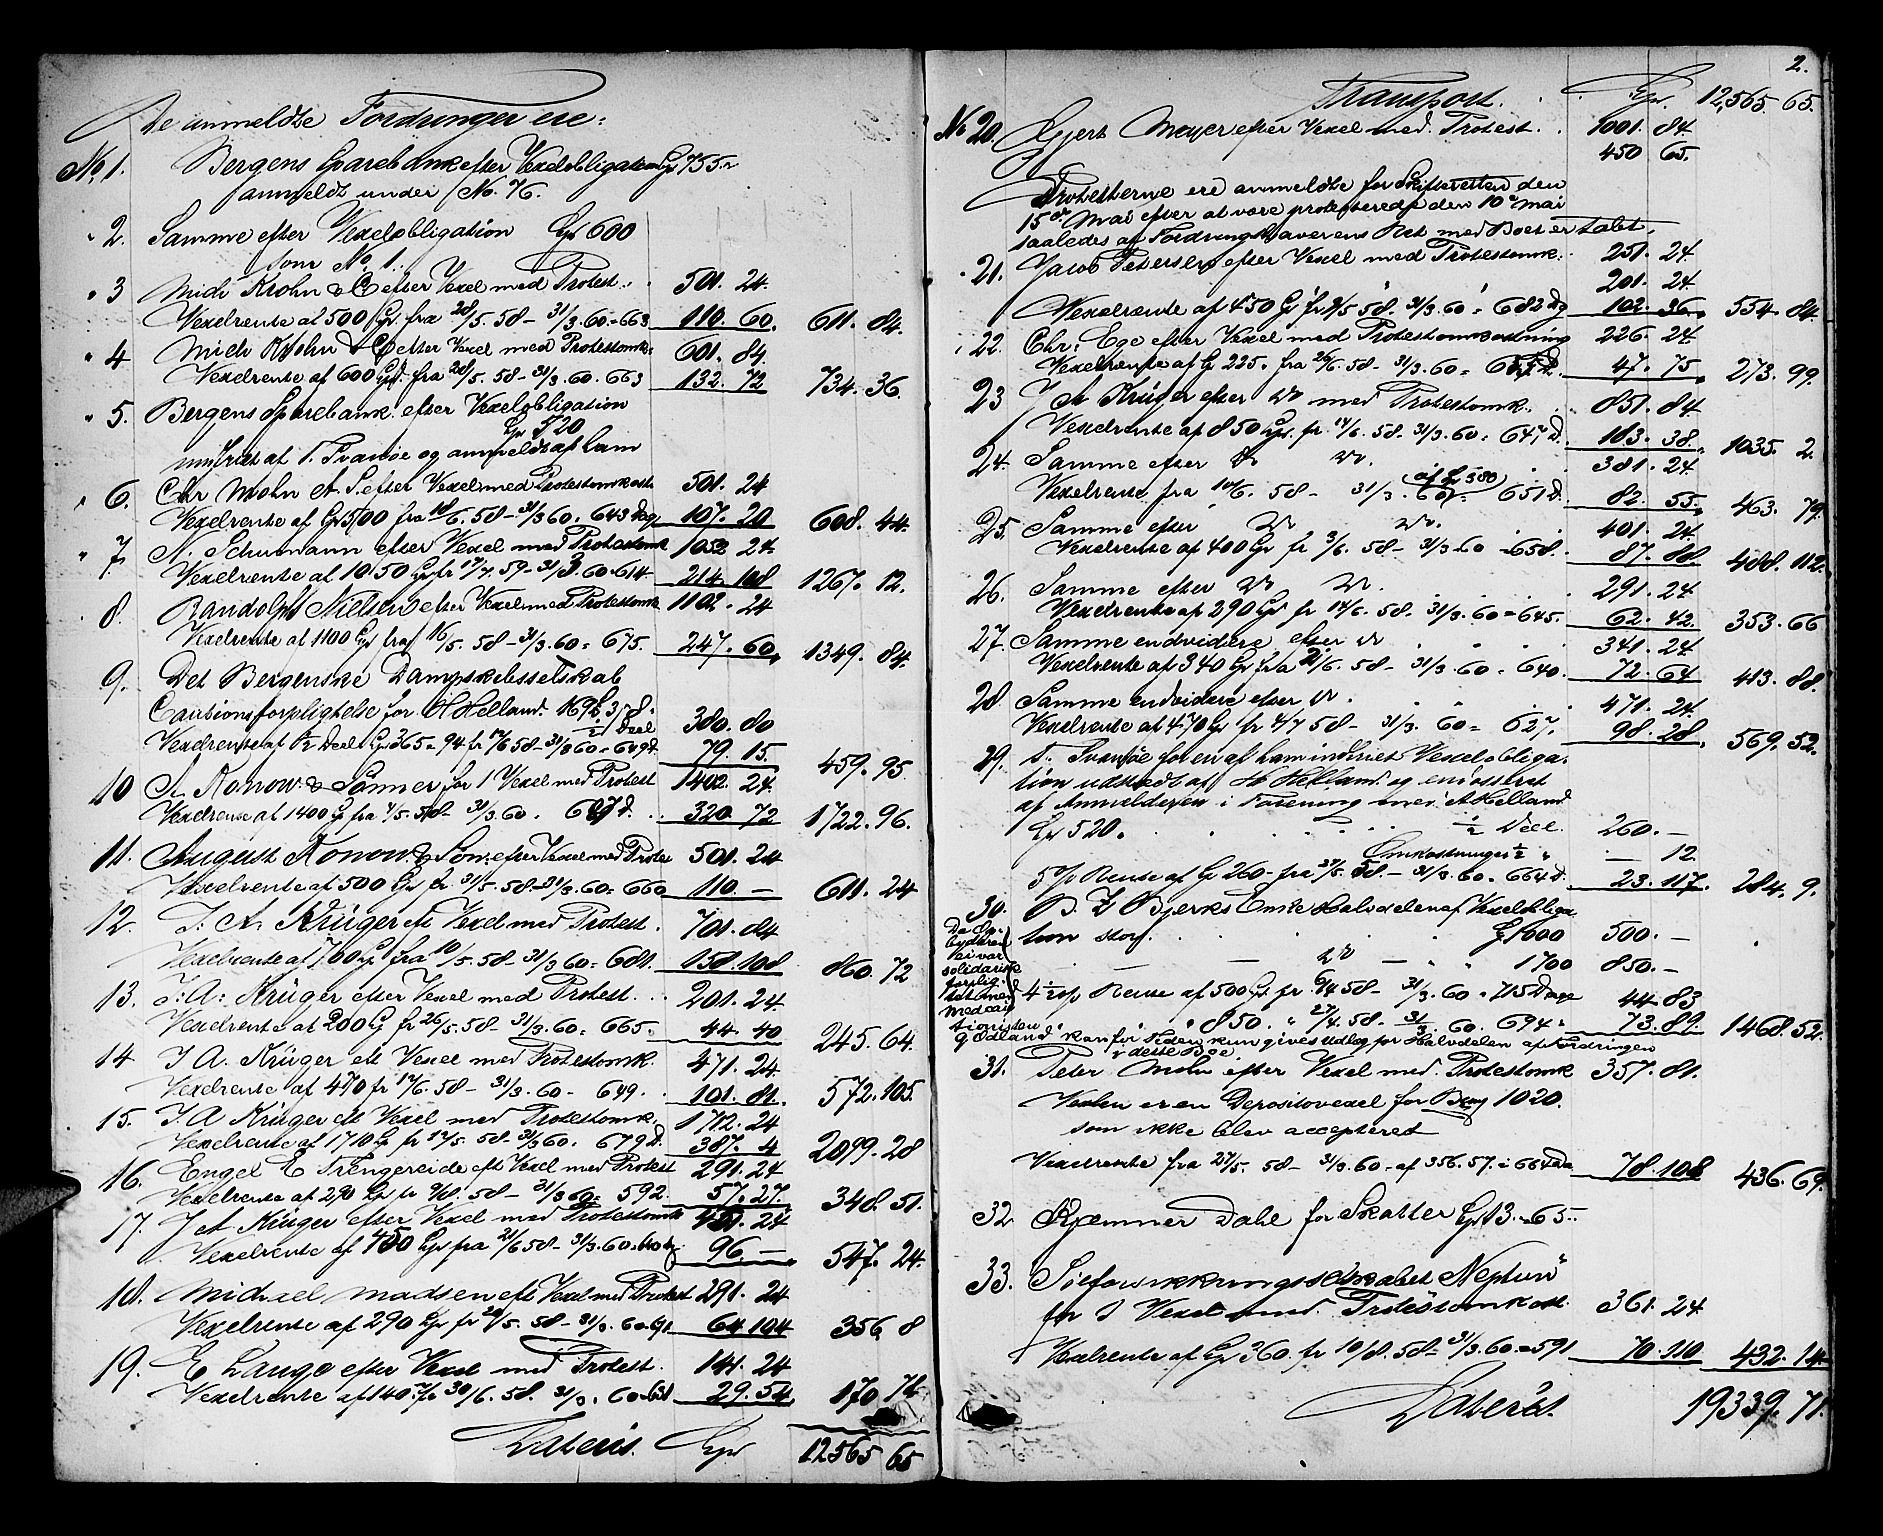 De anmeldte Fordringer ere:
No. 1. Bergens Sparebank efter Vexelobligation Spd 755 "
anmeldt under No. 76.
" 2. Samme efter Vexelobligation Spd 600
som No. 1.
" 3 Mich Krohn & C efter Vexel med Protest. 501. 24.
Vexelrente af 500 Spd. fra 28/5. 58 - 31/3. 60. = 663 110. 60. 611. 84.
" 4 Mich Krohn & C efter Vexel med Protestomk. 601. 84.
Vexelrente af 600 Spd. fra 28/5. 58 - 31/3. 60. 663 132. 72 734. 36.
" 5. Bergens Sparebank efter Vexelobligation
Spd 520
indfriet af T. Svanøe og anmeldt af ham
" 6. Chr Mohn A. S. efter Vexel med Protestomkost. 501. 24
Vexelrente af Spd 500 fra 18/6. 58 - 31/3 60. 643 Dag 107. 20 608. 44.
" 7. N. Schumann efter Vexel med Protestomk 1052 24.
Vexelrente af 1050 Spd fr 17/7. 59 - 31/3. 60. 614 214. 108 1267. 12.
" 8. Randolph Nielsen efter Vexel med Protestomk 1102. 24
Vexelrente af 1100 Spd fra 16/5. 58 - 31/3 60 = 675. 247. 60. 1349. 84.
9. Det Bergenske Dampskibsselskab
Cautionsforpligtelse for H Helland. 169 £ 3/8 .
1/2 Deel 380. 80
Vexelrente af 1/2 Deel Spd 365 = 94 fr 12/6 58 - 31/3 60 = 649 D. 79. 15. 459. 95
10 A Konow & Sønner for 1 Vexel med Protest 1402. 24.
Vexelrente af 1400 Spd fra 4/5. 58 - 31/3. 60. 687 D. 320. 72 1722. 96.
11. August Konow & Søn: efter Vexel med Protes 501. 24
Vexelrente af 500 Spd fr 31/5. 58 - 31/3. 60 = 660 110. - 611. 24
12. J. A. Krüger eft Vexel med Protest. 701. 84
Vexelrente af 700 Spd fra 10/5. 58 - 31/3 60 = 681. 158. 108 860. 72
13. J: A: Krüger efter Vexel med Protest. 201. 24.
Vexelrente af 200 Spd fr 26/5. 58 - 31/3. 60 = 665 = 44. 40 245. 64.
14 J A. Krüger eft Vexel med Protestomk. 471. 24.
Vexelrente af 470 fr 12/6. 58 - 31/3. 60 - 649. 101. 81. 572. 105.
15. J. A Krüger eft Vexel med Protestomk. 1712. 24
Vexelrente af 1710 Spd fr 12/5. 58 - 31/3 60. 679 D. 387. 4 2099. 28
16. Engel E Trengereide eft Vexel med Protest 291. 24
Vexelrente af 290 Spd fr 9/8. 58 - 31/3 60 = 592. 57. 27. 348. 51.
17. J A Krüger efter Vexel med Protestomk 451. 24
Vexelrente af 450 Spd fra 21/6 58 - 31/3. 60. 640 D 96. - 547. 24.
18. Michael Madsen eft Vexel med Protest 291. 24
Vexelrente af 290 Spd fr 20/5. 58 - 31/3. 60 = 64 104 356. 8
19. E Lange efter Vexel med Protest. 141. 24
Vexelrente af 140. fr 30/6. 58. 31/3. 60 = 631 29. 54. 170 78
Lateris. Spd 12565 65
2.
Transport. Spd. 12,565. 65.
No 20. Gjert Meyer efter Vexel med Protest. 1001. 84.
450 65.
Protesterne ere anmeldte for Skifteretten den
15de Mai efter at være protesterede den 10de Mai
saaledes at Fordringshaverens Ret med Boet er tabt.
" 21. Jacob Petersen efter Vexel med Protestomk. 251. 24
201. 24
Vexelrente af 450 Spd fr 9/5 58. 31/3. 60 = 682 Dg 102. 36. 554. 84.
" 22. Chr. Ege efter Vexel med Protestomkostning 226. 24
Vexelrente af Spd 225. fra 26/6. 58 - 31/3. 60 = 635 D. 47. 75. 273. 99.
23 J A Krüger efter do med Protestomk. 851. 84
Vexelrente af 850 Spd. fr. 14/6. 58. 31/3. 60 = 647 D. 183. 38. 1035. 2.
24. Samme efter do do. 381. 24
af £ 380
Vexelrente fra 10/6. 58 - 31/3. 60. = 651 D. 82. 55. 463. 79.
25. Samme efter do do. 401. 24.
Vexelrente af 400 Spd fr 3/6. 58 - 31/3 60 = 658. 87. 88. 488. 112.
26. Samme efter do do. 291. 24
Vexelrente af 290 Spd fr 14/6. 58. 31/3. 60 = 645. 62. 42. 353. 66
27. Samme endvidere efter do 341. 24
Vexelrente af 340 Spd fra 21/6. 58 - 31/3. 60 = 640. 72. 64 413. 88.
28 Samme endvidere efter do. 471. 24.
Vexelrente af 470 Spd fr 4/7 58 - 31/3. 60 = 627. 98. 28. 569. 52.
29. T. Svanøe for en af ham indfriet Vexelobliga-
tion udstedt af H Helland og endosseret
af Anmelderen i Forening med A Helland
Spd 520. 1/2 Deel. 260. -
Omkostninger 1/2 " - 12.
5 p% Rente af Spd 260 - fra 27/5. 58 - 31/3. 60 = 664 D. 23. 117. 284. 9.
30. B. Z Bjerks Enke Halvdelen af Vexelobliga-
tion stor. £ 1000 500. -
- do - " 1700 850. -
4 1/2 p% Rente af 500 Spd fr. 6/4 58 - 31/3. 60 = 715 Dage 44. 83
" " " 850. " 27/4. 58 - 31/3. 60. 694 " 73. 89. 1468. 52.
Da
var
solidarisk
forplig-
tet med
Medcau-
tionisten
G Odland kan for Tiden kun gives Udlæg for Halvdelen af Fordringen
i dette Boe.
31. Peter Mohn efter Vexel med Protestomk 357. 81.
Vexlen er en Depositovexel for Brug 1020.
som ikke blev accepteret
Vexelrente fra 27/5. 58 - 31/3. 60 - af 356. 57. = 664 Da 78. 108 436. 69.
32 Kjemner Dahl for Skatter Spd 13. = 65.
33. Sildevirkningsselskabet "Neptun"
for 1 Vexel med Protestomkost. 361. 24
Vexelrente af Spd 360. fr 10/8. 58 - 31/3. 60 = 591 70. 110 432. 14.
Lateris. 19339. 71.